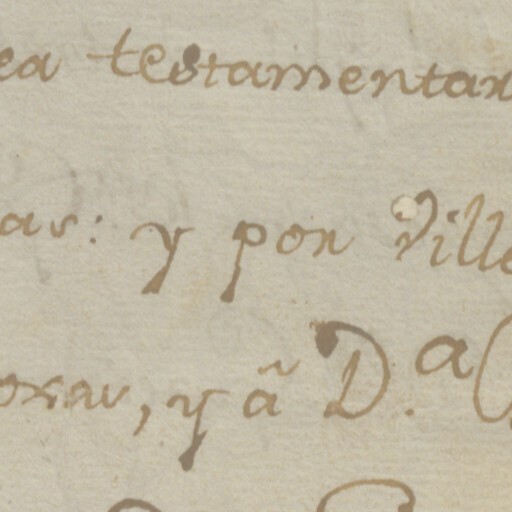 ea testamentar
as: y por Ville
oras, y â D.ª